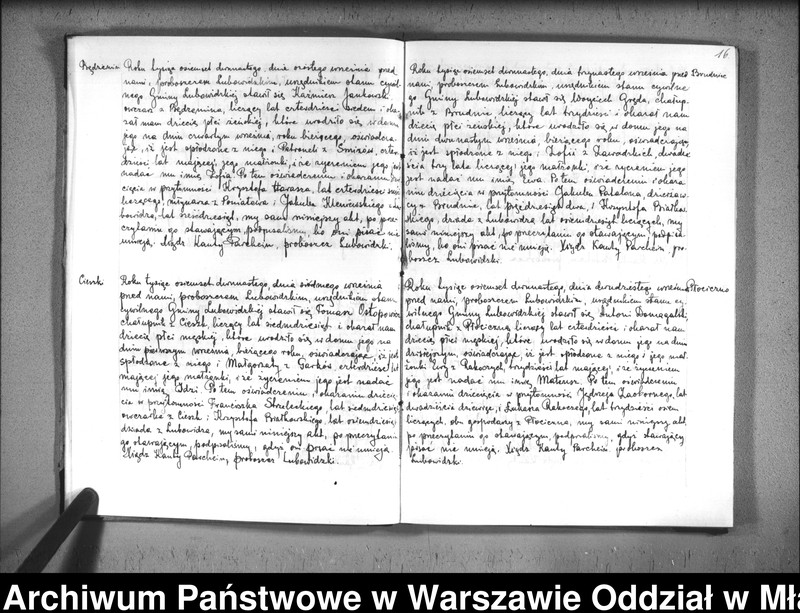 16
Roku tysiąc osiemset dwunastego, dnia szóstego września przed
nami, proboszczem Lubowidzkim, urzędnikiem stanu cywil
nego Gminy Lubowidzkiej stawił się Kaźmierz Jankowski
owczarz z lat czterdzieści siedem i oka
zał nam dziecię płci żeńskiej, które urodziło się w domu
jego na dniu czwartym września, roku bieżącego, oświadcza
jąc, iż jest spłodzone z niego i Petroneli z czter
dzieści lat mającej, jego małżonki, i że życzeniem jego jest
nadać mu imię Zofia. Po tem oświadczeniu i okazaniu dzie
cięcia w przytomności Krzysztofa lat czterdzieści
liczącego, z Poniatowa i Jakuba z Lu
bowidza, lat sześćdziesiąt, my sami niniejszy akt, po prze
czytaniu go stawającym podpisaliśmy, bo oni pisać nie
umieją. Xiądz Kanty Parchem, proboszcz Lubowidzki.
Ciersk
Roku tysiąc osiemset dwunastego, dnia siódmego września
przed nami, proboszczem Lubowidzkim, urzędnikiem stanu
cywilnego Gminy Lubowidzkiej stawił się Tomasz
chałupnik z Ciersk, liczący lat siedmdziesiąt i okazał nam
dziecię płci męskiej, które urodziło się w domu jego na
dniu pierwszym września, bieżącego roku, oświadczając, iż jest
spłodzone z niego i Małgorzaty z czterdzieści lat
mającej jego małżonki, i że życzeniem jego jest nadać
mu imię Idzi. Po tem oświadczeniu, i okazaniu dziecię
cia w przytomności Franciszka Strzeleckiego, lat siedmdziesiąt
owczarka z Ciersk i Krzysztofa Białkowskiego, lat osiemdziesiąt
dziada z Lubowidza, my sami niniejszy akt, po przeczytaniu
go stawającym, podpisaliśmy, gdyż oni pisać nie umieją.
Xiądz Kanty Parchem, proboszcz Lubowidzki.
Roku tysiąc osiemset dwunastego, dnia trzynastego września przed Brudnice
nami, proboszczem Lubowidzkim, urzędnikiem stanu cywilne
go Gminy Lubowidzkiej stawił się Wojciech Gozda, chałup
nik z Brudnic liczący lat trzydzieści i okazał nam
dziecię płci żeńskiej, które urodziło się w domu jego na
dniu dwunastym września, bieżącego roku, oświadczając
iż jest spłodzone z niego i Zofii z Zawadzkich, dwadzie
ścia trzy lata liczącej jego małżonki, i że życzeniem jego
jest nadać mu imię Ewa. Po tem oświadczeniu i okaza
niu dziecięcia w przytomności Jakuba
z Brudnic, lat pięćdziesiąt dwa, i Krzysztofa Białko
wskiego, dziada z Lubowidza lat osiemdziesiąt liczących, my
sami niniejszy akt, po przeczytaniu go stawającym, podpisa
liśmy, bo oni pisać nie umieją. Xiądz Kanty Parchem, pro
boszcz Lubowidzki.
Roku tysiąc osiemset dwunastego, dnia dwudziestego września
przed nami, proboszczem Lubowidzkim, urzędnikiem stanu cy
wilnego Gminy Lubowidzkiej stawił się Antoni
chałupnik z liczący lat czterdzieści i okazał nam
dziecię płci męskiej, które urodziło się w domu jego na dniu
dzisiejszym, oświadczając, iż jest spłodzone z niego i jego mał
żonki Ewy z trzydzieści lat mającej, i że życzeniem
jego jest nadać mu imię Mateusz. Po tem oświadczeniu
i okazaniu dziecięcia w przytomności Jędrzeja lat
dwadzieścia dziewięć, i Łukasza lat trzydzieści osiem
liczących, obu gospodarzy z my sami niniejszy akt
po przeczytaniu go stawającym, podpisaliśmy, gdyż stawający
pisać nie umieją. Xiądz Kanty Parchem, proboszcz
Lubowidzki.
Archiwum Państwowe w Warszawie Oddział w